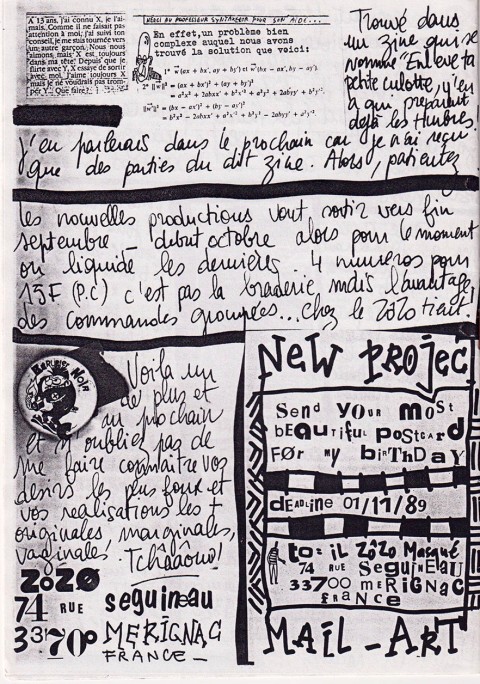 A 13 ans, j'ai connu X, je l'ai-
mais. Comme il ne faisait pas
attention à moi, j'ai suivi ton
conseil, je me suis tournée vers
un autre garçon. Nous nous
aimons mais X est toujours
dans ma tête. Depuis que je
flirte avec Y, X essaye de sortir
avec moi. J'aime toujours X
mais je ne voudrais pas trom-
per Y... Que faire?
En effet, un problème bien
complexe auquel nous avons
trouvé la solution que voici:
Trouvé dans
un zine qui se
nomme "Enlève ta
petite culotte, y'en
a qui préparent
déjà les tubes!
J'en parlerais dans le prochain car je n'ai reçu
que des parties du dit zine. Alors, patientez
Les nouvelles productions vont sortir vers fin
septembre - début octobre alors pour le moment
on liquide les dernières 4 numéros pour
15F (P.C) c'est pas la braderie mais l'avantage
des commandes groupées... chez le Zözo tiait!
BERURIER NOIR
Voilà un
de plus et
au prochain
et n'oubliez pas de
me faire connaître vos
désirs les plus foux et
vos réalisations les +
originales, marginales,
vaginales. Tchâââouo!
ZöZØ
74 RUE seguineau
33170° MERIGNAC
FRANCE -
NEW PROJEC
Send YOUR MOSt
bEAUtiful POStCARd
FØr MY biRTHDAY
dEADLiNE 01/11/89
to: iL ZôZo Masqué
74 RUE SeguiNEAU
33700 MERiGNAC
fRANCE
MAiL-ART